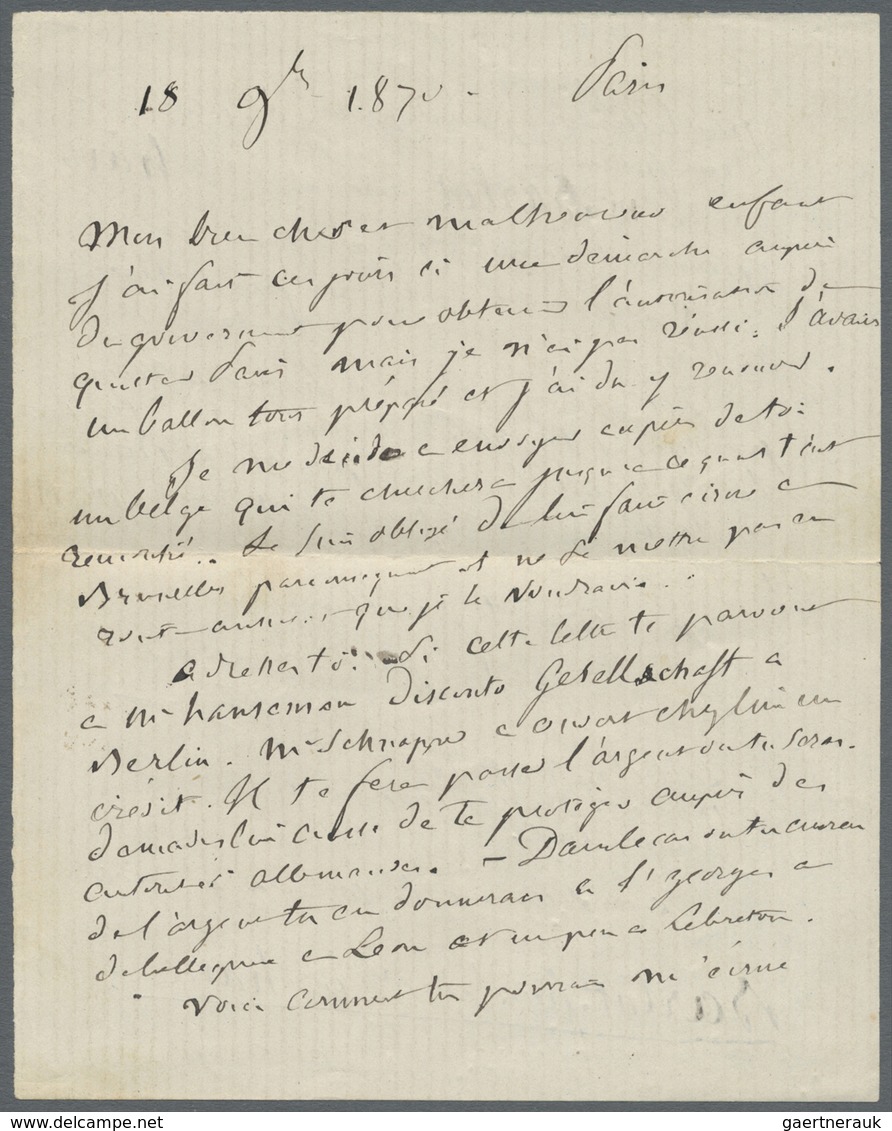 18 9br 1870 - Paris
Mon bien cher et malheureux enfant
J'ai fait ces jours ci une démarche auprès
du gouvernement pour obtenir l'autorisation de
quitter Paris mais je n'ai pas réussi. J'avais
un ballon tout préparé et j'ai du y renoncer.
Je me décide a envoyer auprès de toi
un belge qui te cherchera jusqu'a ce qu'il t'ait
rencontré. Je suis obligé de lui faire écrire a
Bruxelles par conséquent et ne se mettra pas en
route aussi que je le voudrais.
adresse toi si cette lettre te parvient
a Mr hanseman Disconto Gesellschaft a
Berlin. Mr Schnapper a ouvert chez lui un
crédit. Il te fera passer l'argent dont tu seras.
demandes lui aussi de te protéger auprès des
autorités allemandes. - Dans le cas ou tu aurais
de l'argent tu en donnerais a St georges a
de bellegarde a Leon et un peu a Lebreton.
Voici comment tu pourrais m'écrire
gaertnerauk